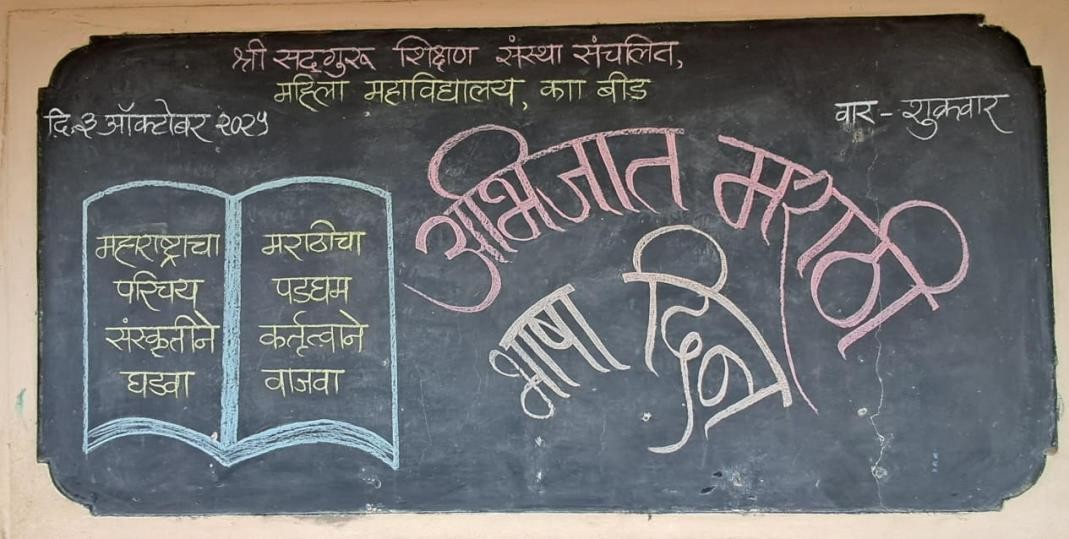 श्री सद्गुरू शिक्षण संस्था संचलित,
महिला महाविद्यालय, काा बीड
दि.३ ऑक्टोबर २०२५
वार - शुक्रवार
अभिजात मराठी
भाषा दिन
महाराष्ट्राचा
परिचय
संस्कृतीने
घडवा
मराठीचा
पडघम
कर्तृत्वाने
वाजवा